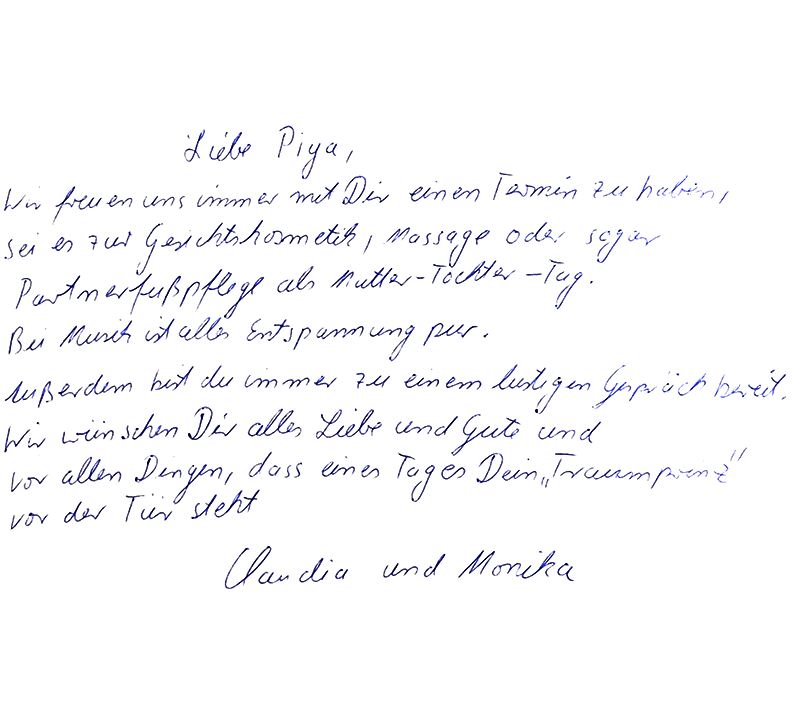 Liebe Piya,
Wir freuen uns immer mit Dir einen Termin zu haben,
sei es zur Gesichtskosmetik, Massage oder sogar
Partnerfußpflege als Mutter-Tochter-Tag.
Bei Musik ist alles Entspannung pur.
Außerdem bist du immer zu einem lustigen Gespräch bereit.
Wir wünschen Dir alles Liebe und Gute und
vor allen Dingen, dass eines Tages Dein „Traumprinz"
vor der Tür steht
Claudia und Monika